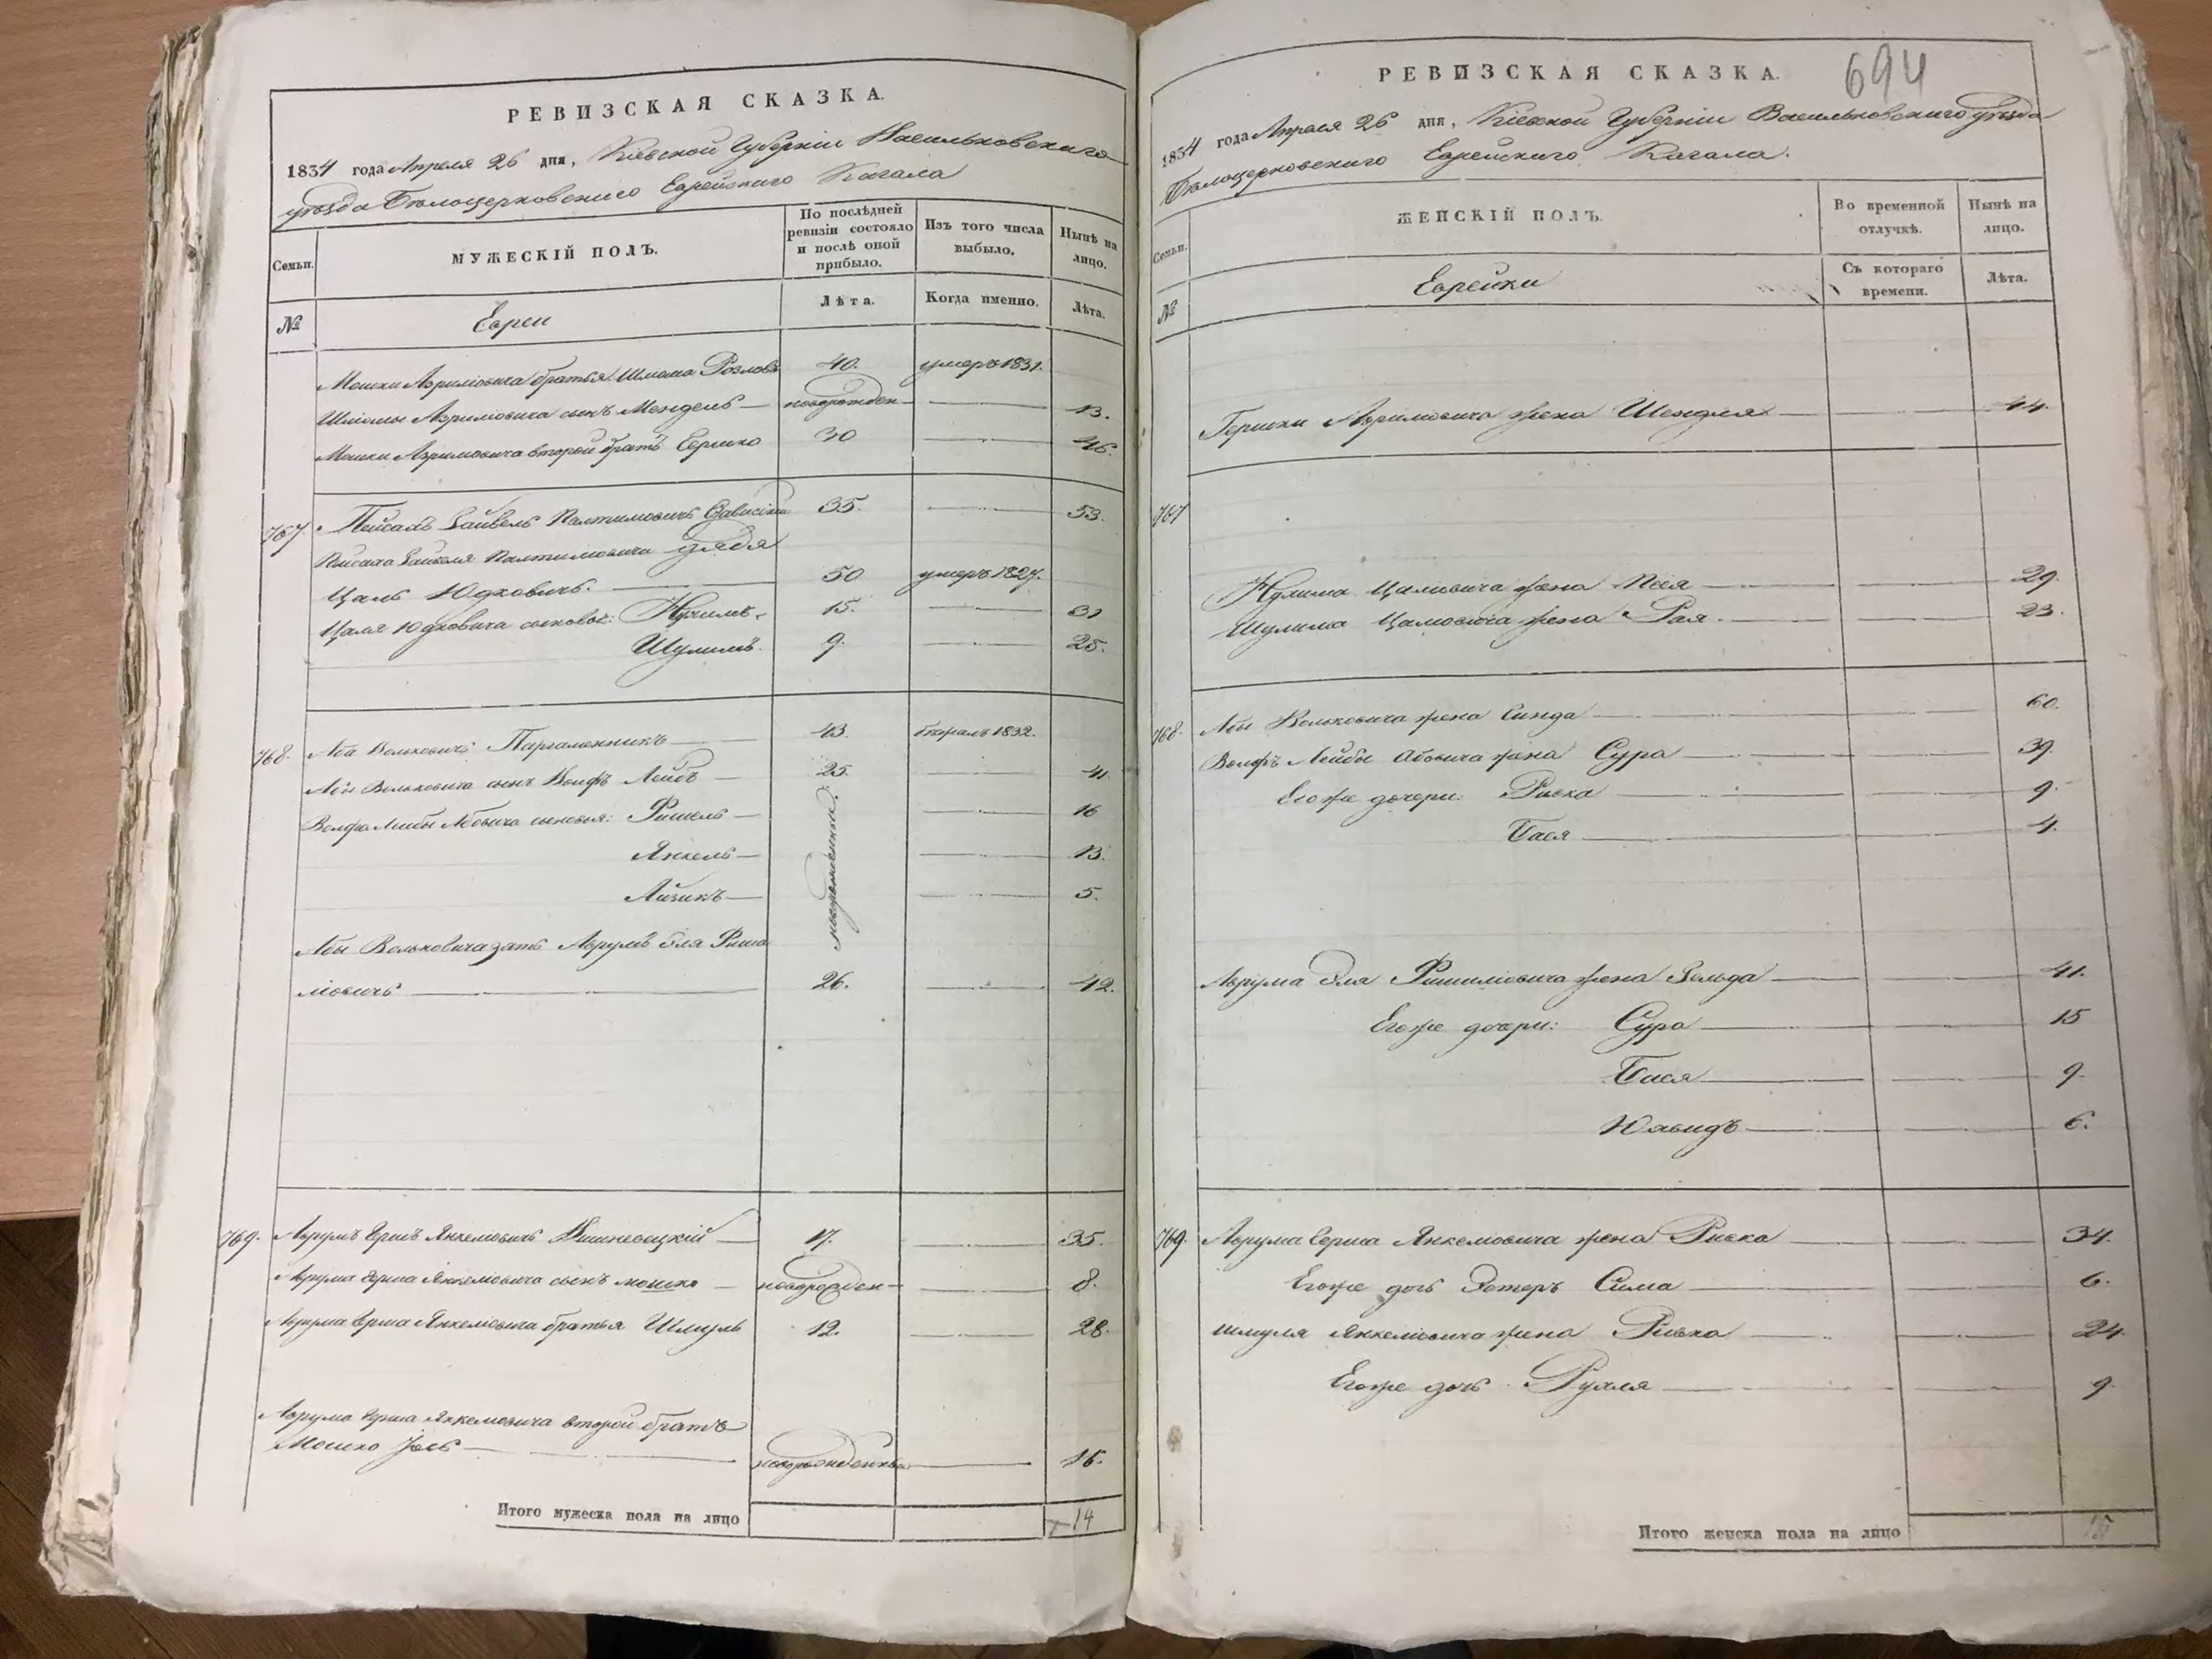 РЕВИЗСКАЯ СКАЗКА.
1834 года Апреля 26 дня, Кіевской Губерніи Васильковскаго
уѣзда Бѣлоцерковскаго Еврейскаго Кагала
Семьи.
МУЖЕСКІЙ ПОЛЪ.
По послѣдней ревизіи состояло и послѣ оной прибыло.
Изъ того числа выбыло.
Нынѣ на лицо.
№
Евреи
Лѣта.
Когда именно.
Лѣта.
Мошки Авруміовича братья Шлома 40. умеръ 1831.
Шломы Аврумовича сынъ Мендель — новорожден — 13.
Мошки Аврумовича второй братъ Гершко 30 — 46.
767. Пейсахъ Зайвель 35. — 53.
Пейсаха Зайвеля дядя
Цаль Юдковичъ. — 50 умеръ 1827.
Цаля Юдковича сыновья: Нухимъ. 15. — 31
Шулимъ. 9. — 25.
768. Аба Вольковичъ Паргаменникъ — 43. бѣжалъ 1832.
Абы Вольковича сынъ Волфъ Лейбъ — 25. — 41.
Волфа Лейбы Абовича сыновья: Фишель — новорожденные. — 16
Янкель — — 13.
Айзикъ — — 5.
Абы Вольковича зять Аврумъ Эля Фише
ліовичъ — 26. — 42.
769. Аврумъ Гершъ Янкеліовичъ Вишневецкій — 17. — 35.
Аврума Герша Янкеліовича сынъ Мошко — новорожден — 8.
Аврума Герша Янкеліовича братья Шмуль 12. — 28.
Аврума Герша Янкеліовича второй братъ
Мошко Іось — новорожденъ — 16.
Итого мужеска пола на лицо 14
РЕВИЗСКАЯ СКАЗКА.
694
1834 года Апреля 26 дня, Кіевской Губерніи Васильковскаго уѣзда
Бѣлоцерковскаго Еврейскаго Кагала.
Семьи.
ЖЕНСКІЙ ПОЛЪ.
Во временной отлучкѣ.
Нынѣ на лицо.
№
Еврейки
Съ котораго времени.
Лѣта.
Гершки Аврумовича жена Шендля — 44.
767
Нухима Цаліовича жена Песя — 29.
Шулима Цаліовича жена Рая. — 23.
768. Абы Вольковича жена Синда — 60.
Волфъ Лейбы Абовича жена Сура — 39.
Его же дочери: Ривка — 9.
Бася — 4.
Аврума Эля Фишиліовича жена Зельда — 41.
Его же дочери: Сура — 15
Бася — 9.
— 6.
769. Аврума Герша Янкеліовича жена Ривка — 34.
Его же дочь Эстеръ Сима — 6.
Шмуля Янкеліовича жена Ривка — 24.
Его же дочь Рухля — 9
Итого женска пола на лицо 15